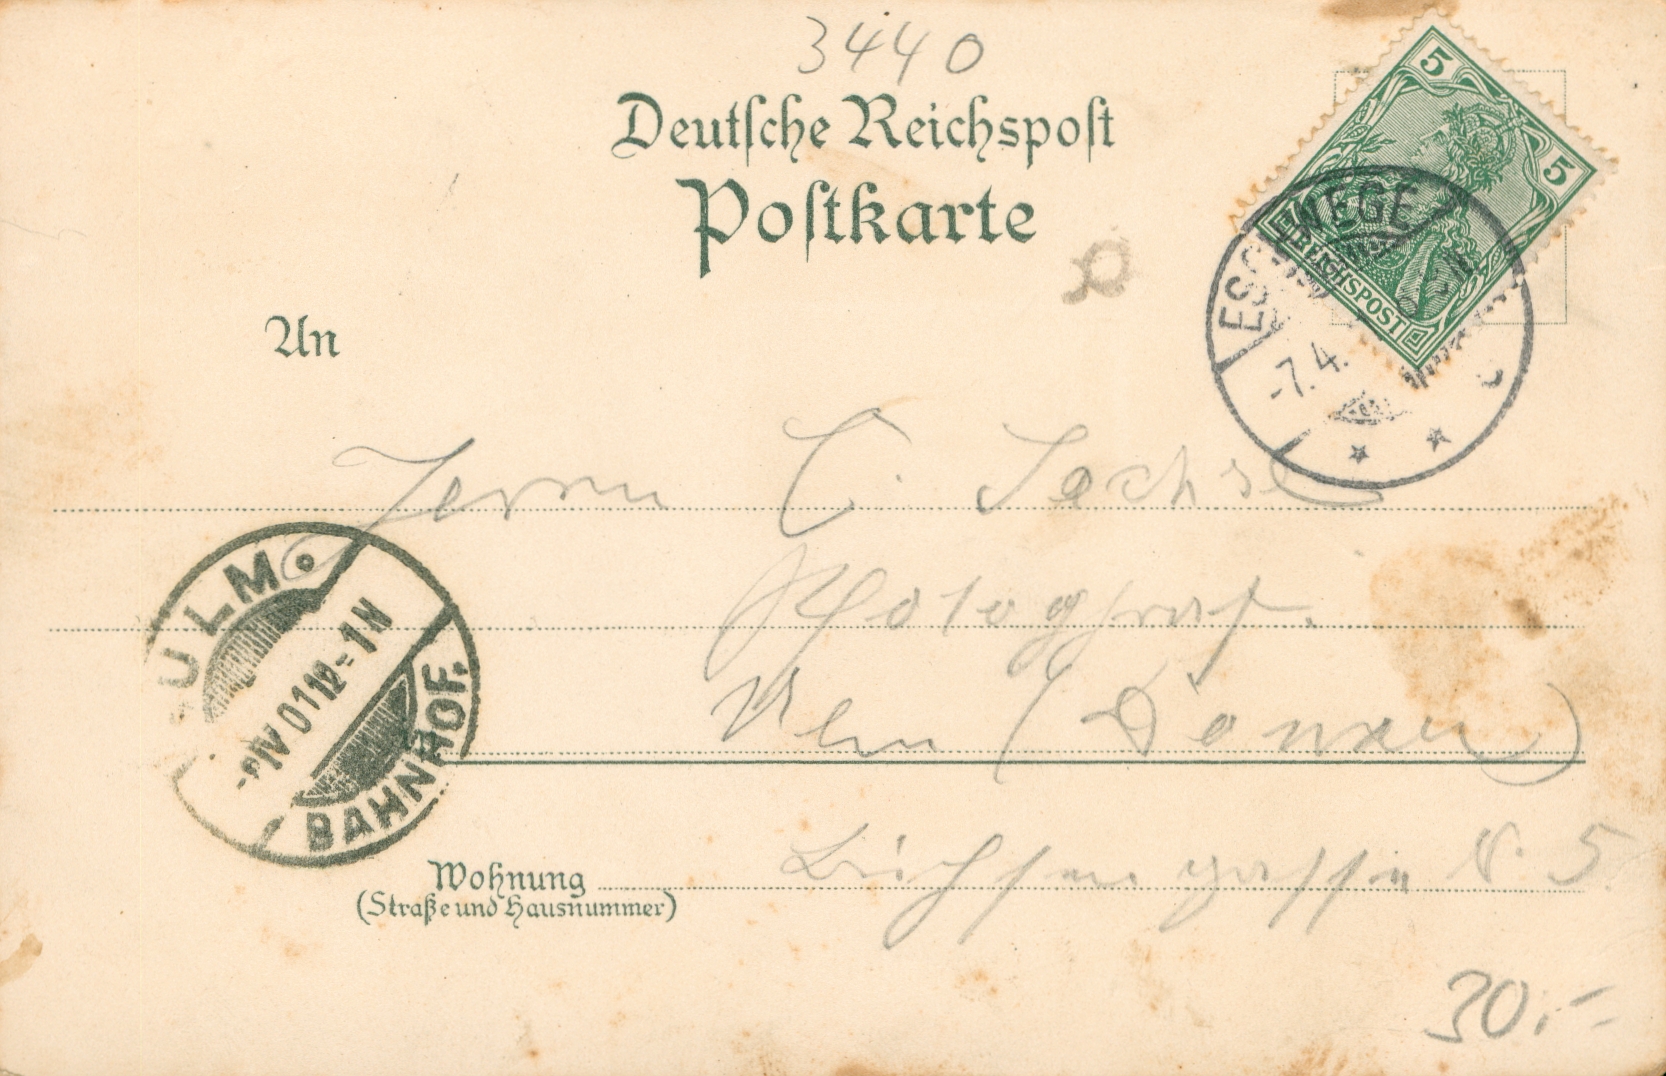 3440
Deutsche Reichspost
Postkarte
5
5
REICHSPOST
ESCHWEGE
-7.4.
An
Herrn C. Sachse
Fotograf.
Ulm (Donau)
ULM.
IV 01 12-1N
BAHNHOF.
Wohnung
(Straße und Hausnummer)
Büchsengasse N. 5
30.-